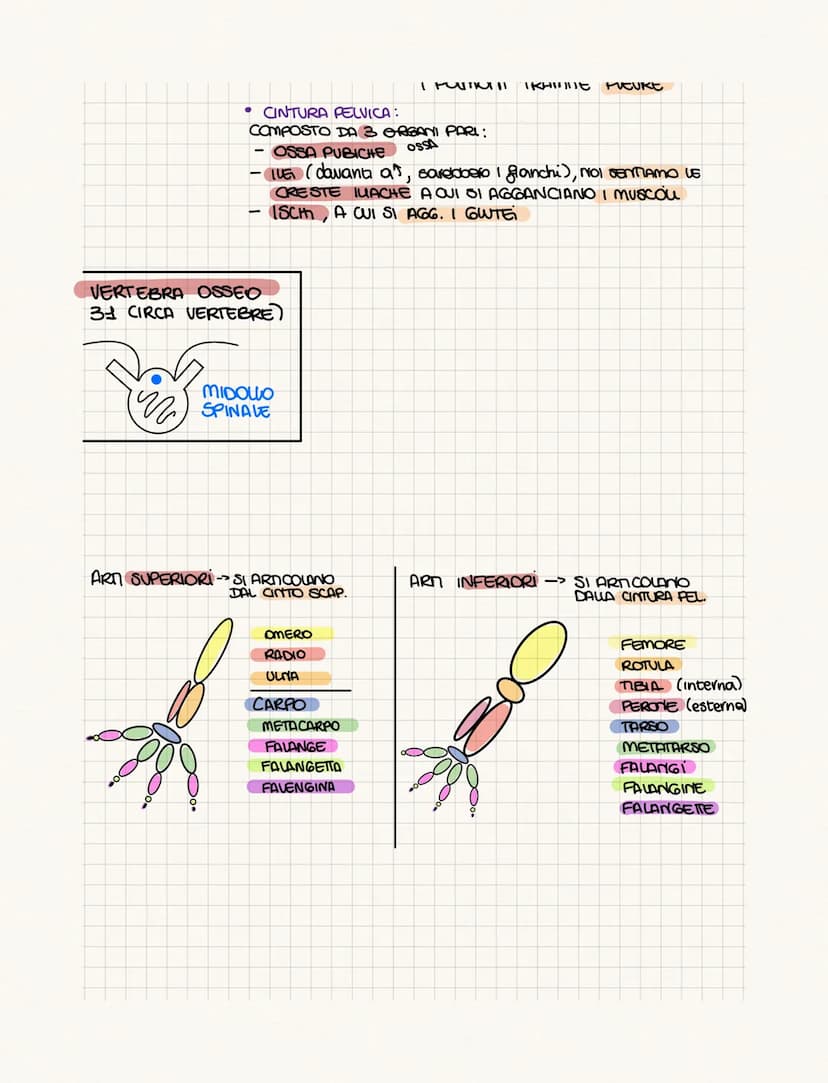 TRAMITE PLEURE
• CINTURA PELVICA:
COMPOSTO DA 3 ORGANI PARI:
OSSA
- OSSA PUBICHE
- ILEI (davanti a↑, sarebbero i fianchi), NOI SENTIAMO LE
CRESTE ILIACHE A CUI SI AGGANCIANO I MUSCOLI
- ISCHI, A CUI SI AGG. I GLUTEI
VERTEBRA OSSEO
31 CIRCA VERTEBRE)
MIDOLLO
SPINALE
ARTI SUPERIORI -> SI ARTICOLANO
DAL CINTO SCAP.
OMERO
RADIO
ULNA
CARPO
METACARPO
FALANGE
FALANGETTA
FALENGINA
ARTI INFERIORI -> SI ARTICOLANO
DALLA CINTURA PEL.
FEMORE
ROTULA
TIBIA (interna)
PERONE (esterna)
TARSO
METATARSO
FALANGI
FALANGINE
FALANGETTE